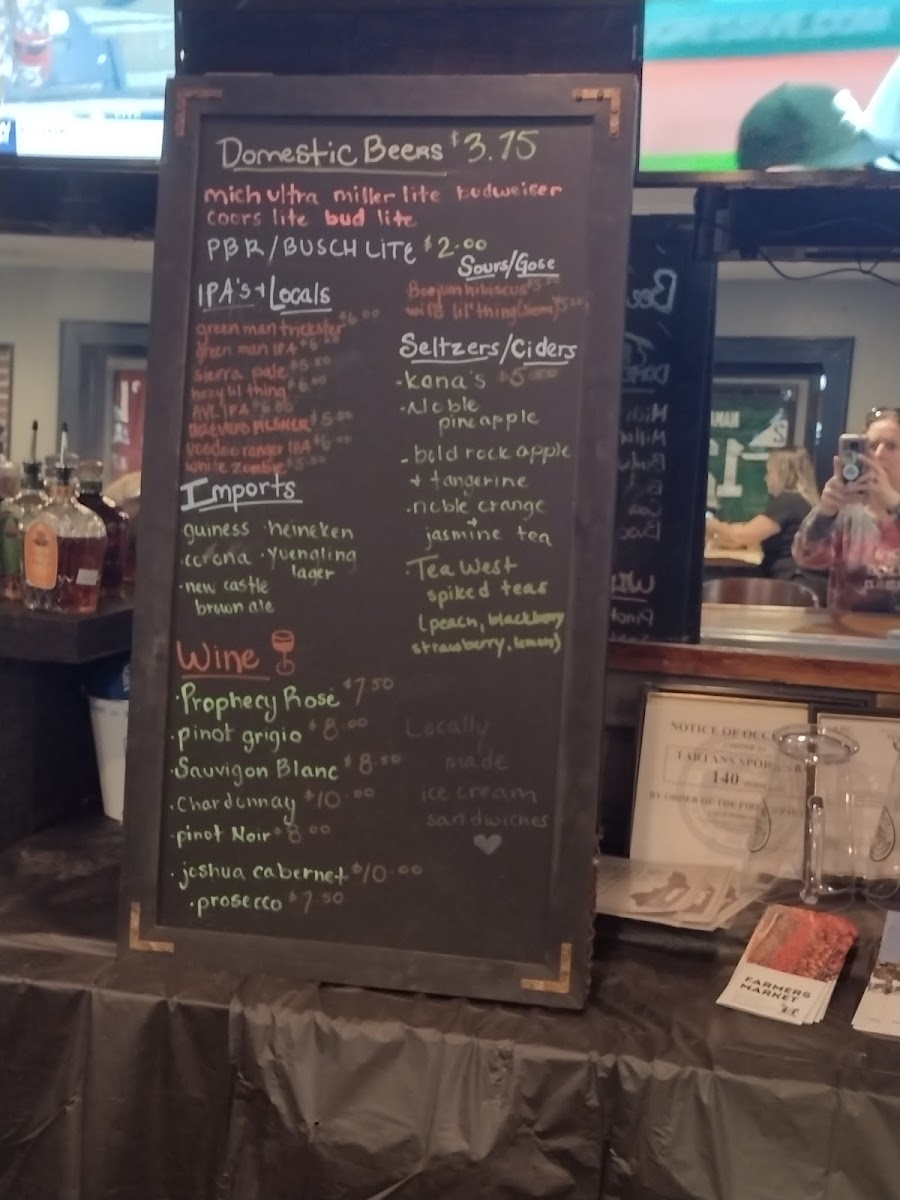 PROGRESSIVE.COM
Domestic Beers $3.75
mich ultra miller lite budweiser
coors lite bud lite
PBR/BUSCH LITE $2.00
IPA's + Locals
green man trickster $6.00
green man IPA $6
sierra pale $5.50
hazy lil thing $6.00
AVL IPA $6.00
BREVARD PILSNER $5.00
voodoo ranger IPA $6.00
white zombie $5.50
Imports
guiness · heineken
·corona · yuengling
lager
·new castle
brown ale
Wine
·Prophecy Rosé $7.50
·pinot grigio $8.00
·Sauvigon Blanc $8.50
·Chardonnay $10.00
·pinot Noir $8.00
·joshua cabernet $10.00
·prosecco $7.50
Sours/Gose
Boojum hibiscus $5.50
wild lil' thing (Sierra) $5.50
Seltzers/Ciders
-kona's $5
·Noble
pineapple
-bold rock apple
+ tangerine
·noble orange
+
jasmine tea
·Tea West
spiked teas
(peach, blackberry
strawberry, lemon)
Locally
made
ice cream
sandwiches
NOTICE OF
TARTANS SPOR
140
FARMERS
MARKET